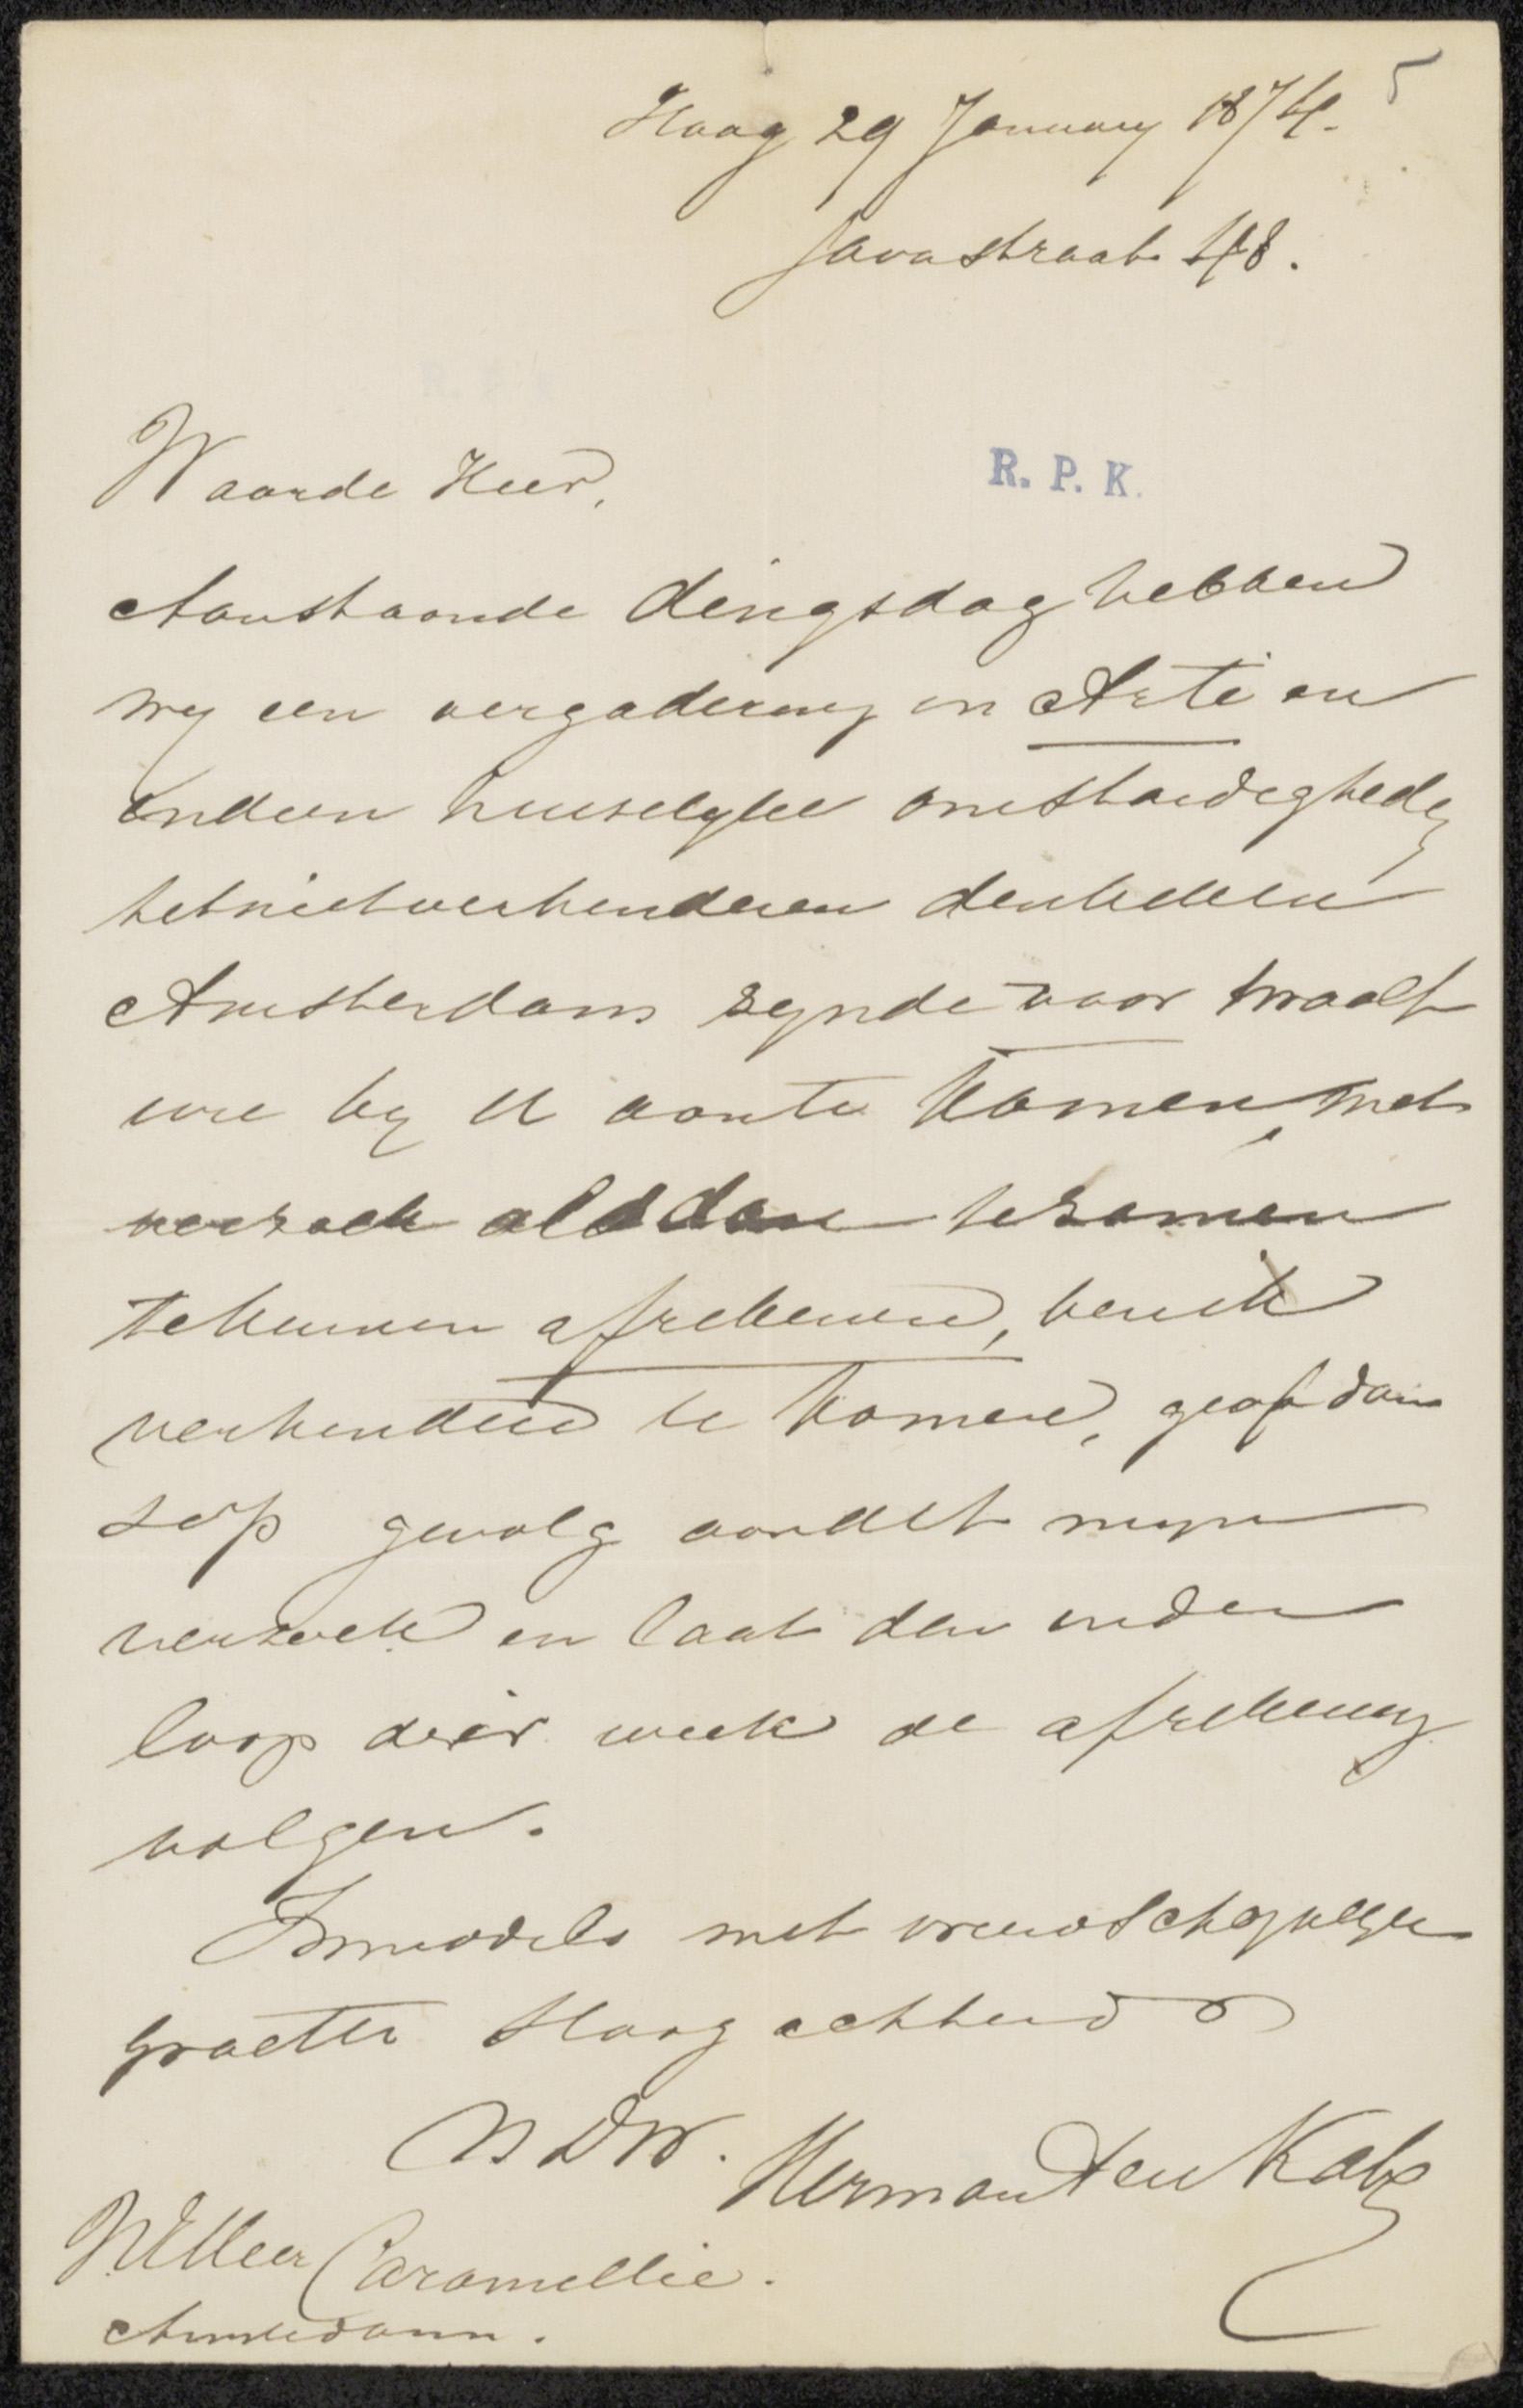 5
Haag 29 January 1874.
Javastraat 48.
R. P. K.
Waarde Heer,
Aanstaande dingsdag hebben
wy een vergadering in Arti en
indien huiselyke omstandigheden
het niet verhinderen denk ik in
Amsterdam zynde voor twaalf
ure by U aan te komen, met
verzoek alsdan te zamen
te kunnen afrekenen, ben ik
verhinderd te komen, geef dan
s.v.p. gevolg aan dit myn
verzoek en laat dan in den
loop dier week de afrekening
volgen.
Inmiddels met vriendschappelyke
groeten Hoogachtend
UDW. Herman ten Kate
WelHeer Caramellie.
Amsterdam.